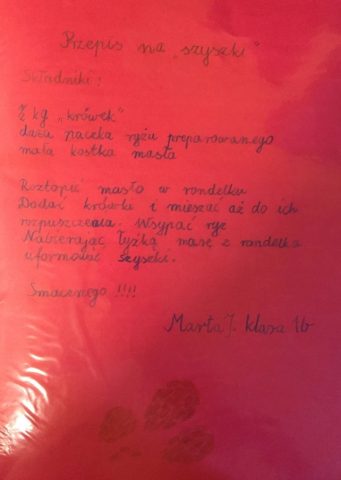 Przepis na „szyszki"
Składniki:
½ kg „krówek"
duża paczka ryżu preparowanego
mała kostka masła
Roztopić masło w rondelku
Dodać krówki i mieszać aż do ich
rozpuszczenia. Wsypać ryż
Nabierając łyżką masę z rondelka
uformować szyszki.
Smacznego !!!!
Marta J. klasa 1b